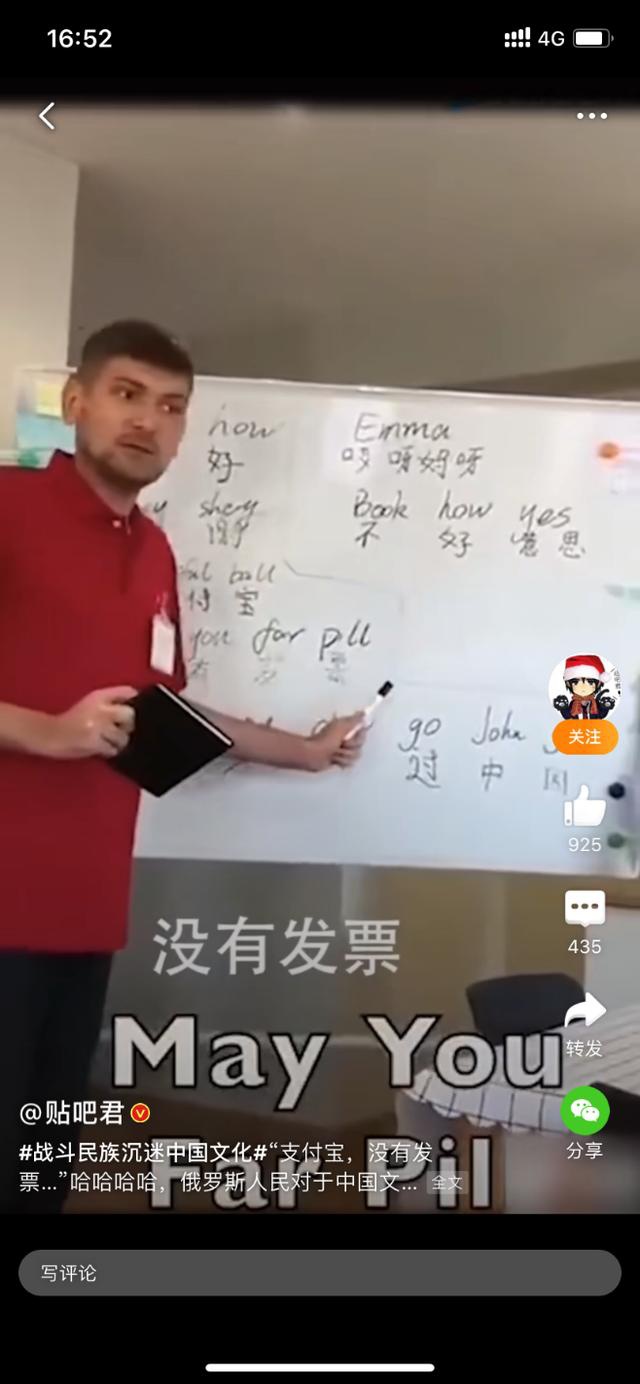 16:52
4G
how Emma
好 哎呀妈呀
Book how yes
不 好 意思
ball
付 宝
you far pll
有 发 票
go John
过 中 国
关注
925
没有发票
435
May You
转发
@贴吧君
#战斗民族沉迷中国文化#“支付宝，没有发
分享
Far Pil
票...”哈哈哈哈，俄罗斯人民对于中国文... 全文
写评论